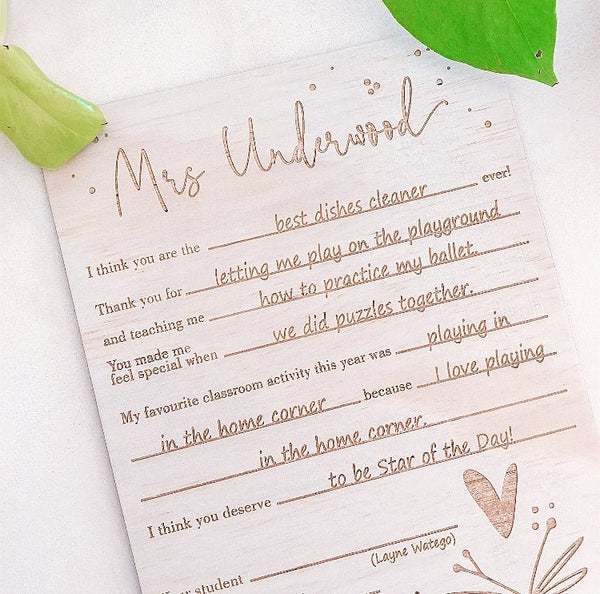 Mrs Underwood
I think you are the best dishes cleaner ever!
Thank you for letting me play on the playground
and teaching me how to practice my ballet.
You made me
feel special when we did puzzles together.
My favourite classroom activity this year was playing in
in the home corner because I love playing
in the home corner.
I think you deserve to be Star of the Day!
(Layne Watego)
student